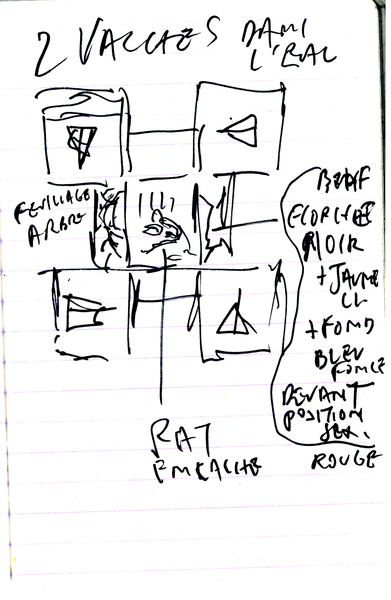 2 VACCHES DAMI
L'EAU
FEUILLAGE
ARBRE
BŒUF
ECORCHE
NOIR
+ JAUNE
CL
+ FOND
BLEU
FONCE
DEVANT
POSITION
ROUGE
RAT